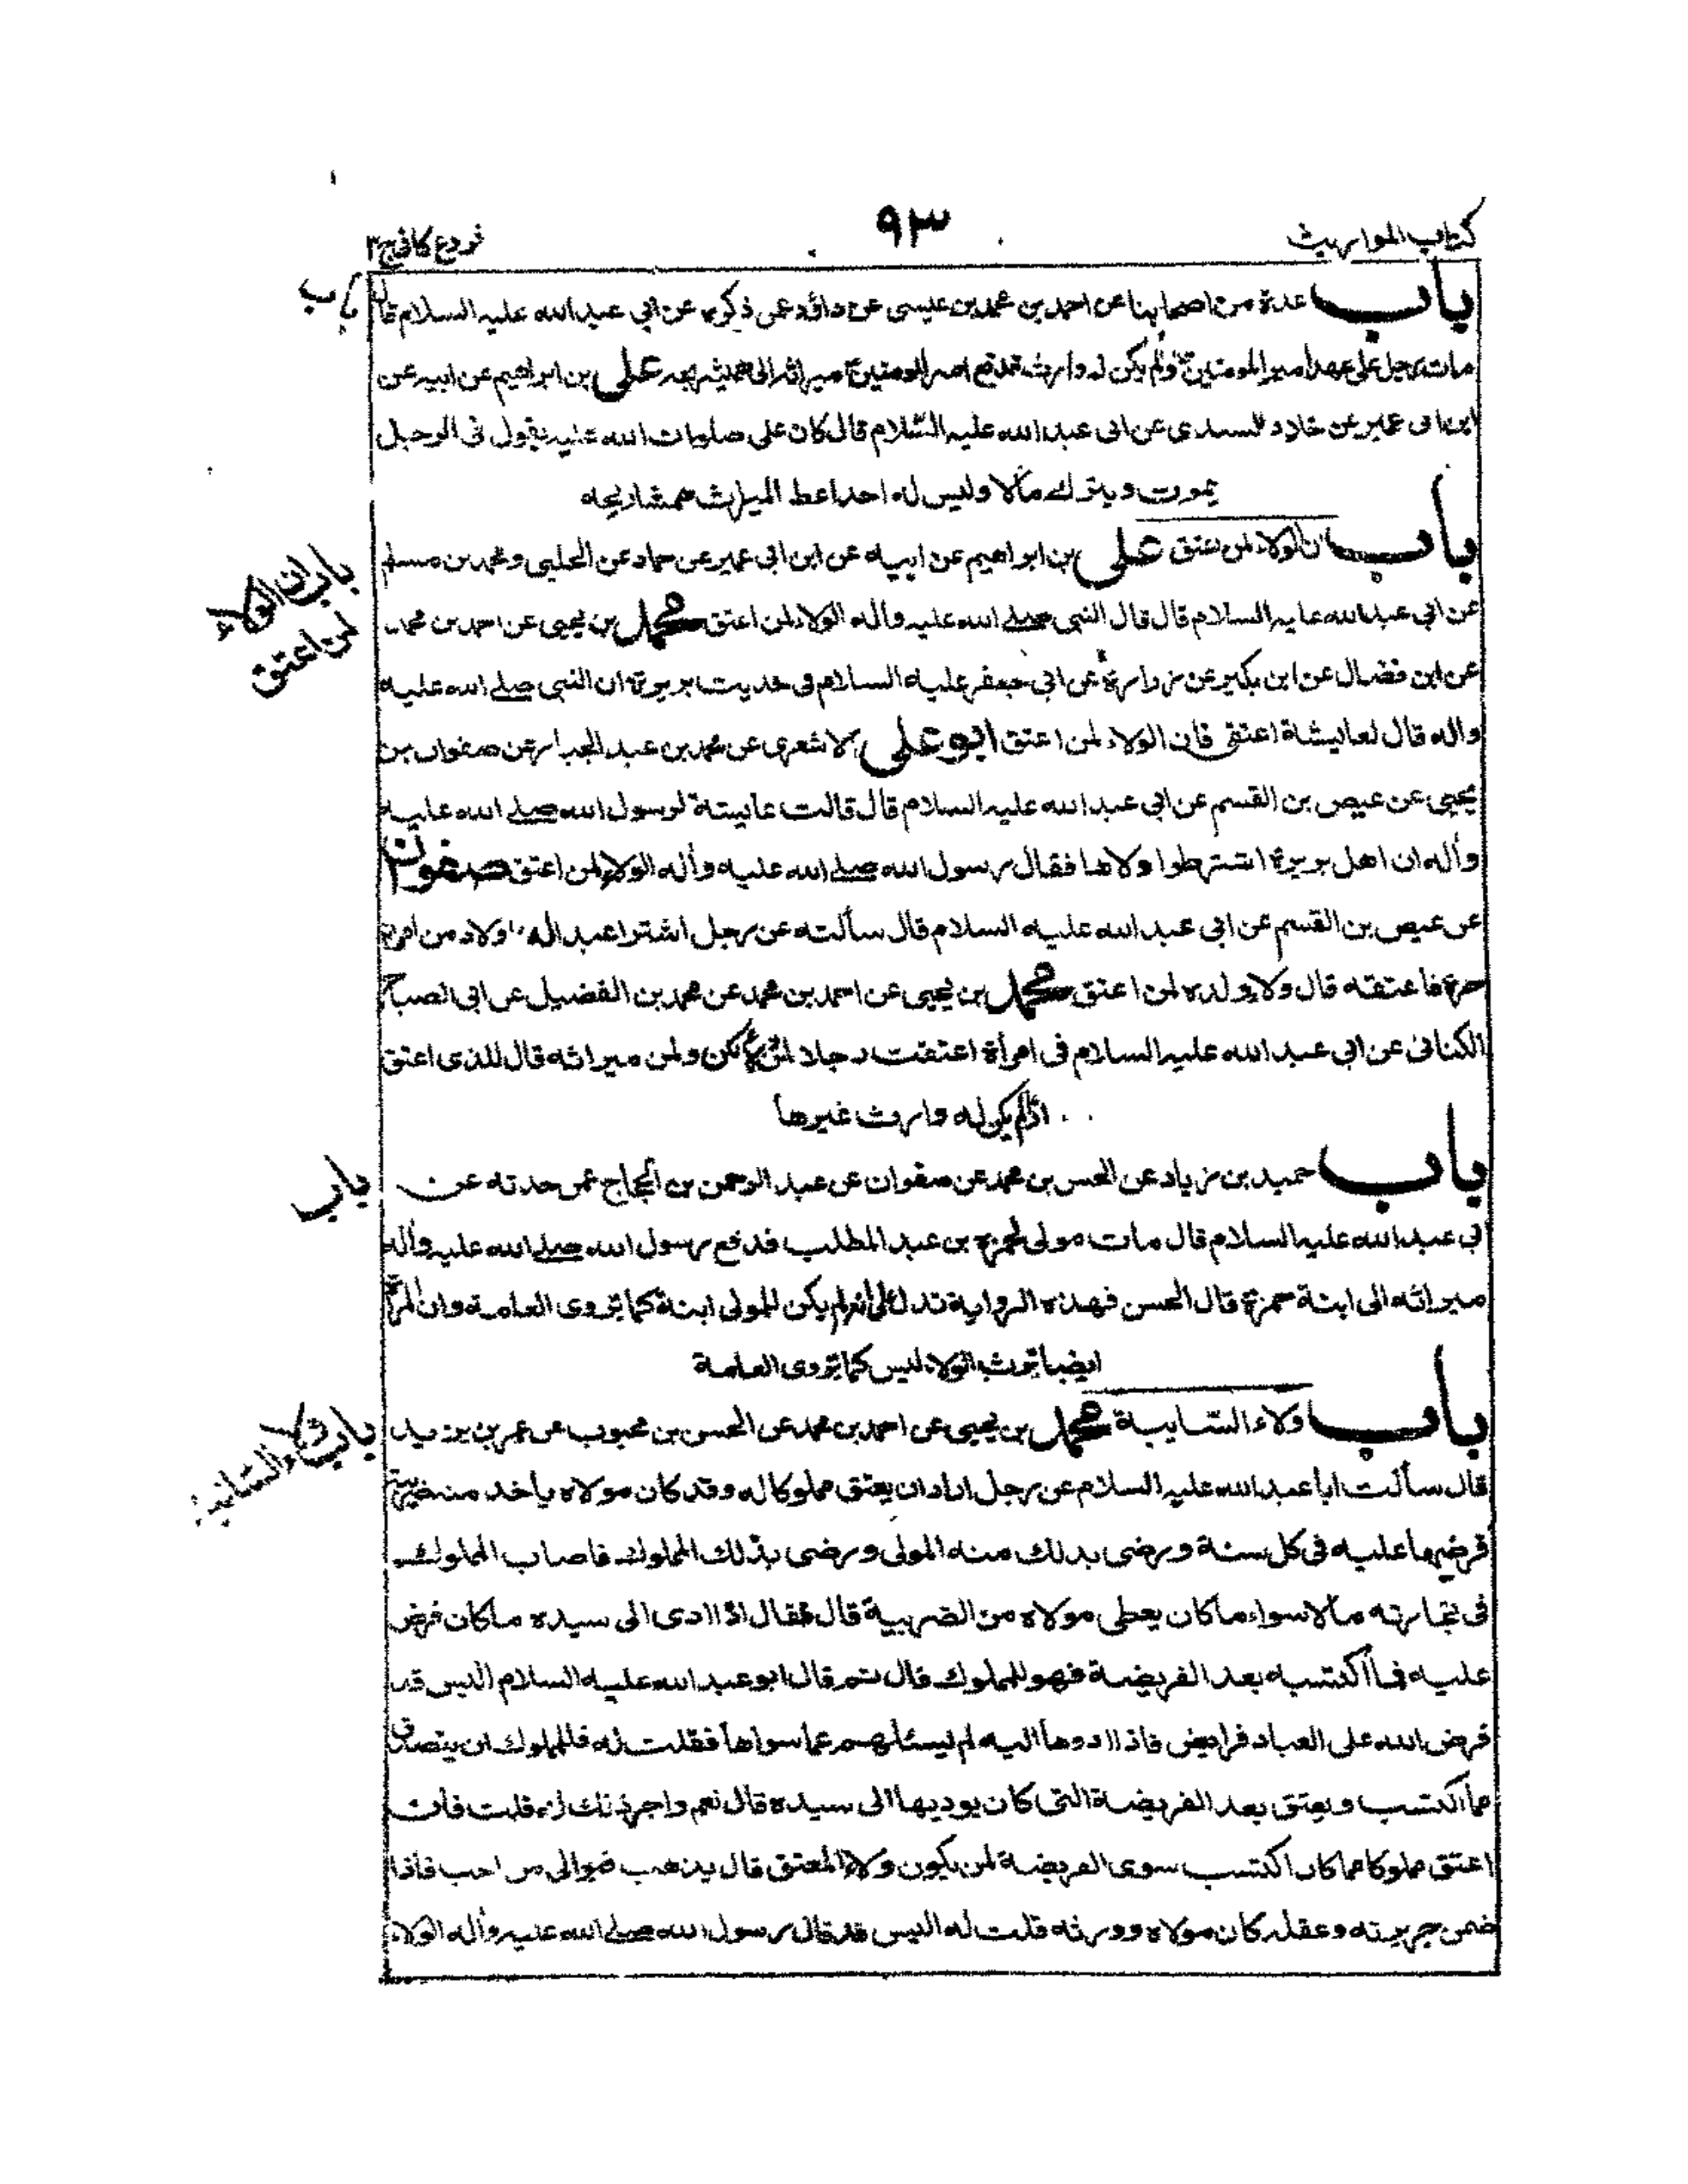 كتاب المواريث
٩٣
فروع كافي ج٣
باب
باب عدة من اصحابنا عن احمد بن محمد بن عيسى عن داؤد عمن ذكره عن ابي عبدالله عليه السلام قال
مات رجل على عهد امير المومنين ولم يكن له وارث فدفع امير المومنين ميراثه الى همشهريجه علي بن ابراهيم عن ابيه عن
ابن ابى عمير عن خلاد السندى عن ابى عبدالله عليه السّلام قال كان على صلوات الله عليه يقول فى الرجل
يموت ويترك مالا وليس له احد اعط الميراث همشاريجه
باب ان الولاء لمن اعتق علي بن ابراهيم عن ابيه عن ابن ابي عمير عن حماد عن الحلبي ومحمد بن مسلم
باب ان الولاء
لمن اعتق
عن ابي عبدالله عليه السلام قال قال النبى صلے الله عليه واله الولاء لمن اعتق محمد بن يحيى عن احمد بن محمد
عن ابن فضال عن ابن بكير عن زرارة عن ابي جعفر عليه السلام فى حديث بريرة ان النبى صلے الله عليه
واله قال لعايشة اعتقى فان الولاء لمن اعتق ابو علي الاشعرى عن محمد بن عبد الجبار عن صفوان بن
يحيى عن عيص بن القسم عن ابي عبدالله عليه السلام قال قالت عايشة لرسول الله صلے الله عليه
وأله ان اهل بريرة اشترطوا ولاءها فقال رسول الله صلے الله عليه وأله الولاء لمن اعتق صفوان
عن عيص بن القسم عن ابي عبدالله عليه السلام قال سألته عن رجل اشترا عبدا له اولاد من امرة
حرة فاعتقه قال ولاء ولده لمن اعتق محمد بن يحيى عن احمد بن محمد عن محمد بن الفضيل عن ابى الصباح
الكنانى عن ابي عبدالله عليه السلام فى امرأة اعتقت رجلا لمن ولمن ميراثه قال للذى اعتق
اذالم يكن له وارث غيرها
باب
باب حميد بن زياد عن الحسن بن محمد عن صفوان عن عبد الرحمن بن الحجاج عمن حدثه عن
ابي عبدالله عليه السلام قال مات مولى لحمزة بن عبد المطلب فدفع رسول الله صلے الله عليه وأله
ميراثه الى ابنة حمزة قال الحسن فهذه الرواية تدل على انه لم يكن للمولى ابنة كما تروى العامة وان المرأة
ايضا ترث الولاء ليس كما تروى العامة
باب ولاء السّايبة محمد بن يحيى عن احمد بن محمد عن الحسن بن محبوب عن عمر بن يزيد
باب ولاء السّائبة
قال سألت ابا عبدالله عليه السلام عن رجل اراد ان يعتق مملوكا له وقد كان مولاه ياخذ منه ضريبة
فرضها عليه فى كل سنة ورضى بذلك منه المولى ورضى بذلك المملوك فاصاب المملوك
فى تجارته مالا سواء ما كان يعطى مولاه من الضريبة قال فقال اذا ادى الى سيده ما كان فرض
عليه فما اكتسبه بعد الفريضة فهو للمملوك قال ثم قال ابو عبدالله عليه السلام اليس قد
فرض الله على العباد فرايض فاذا ادوها اليه لم يسئلهم عما سواها فقلت له فللمملوك ان يتصدق
مما اكتسب ويعتق بعد الفريضة التى كان يوديها الى سيده قال نعم واجر ذلك له قلت فان
اعتق مملوكا مما كان اكتسب سوى الفريضة لمن يكون ولاء المعتق قال يذهب فيوالى من احب فاذا
ضمن جريرته وعقله كان مولاه وورثه قلت له اليس قد قال رسول الله صلے الله عليه وأله الولاء